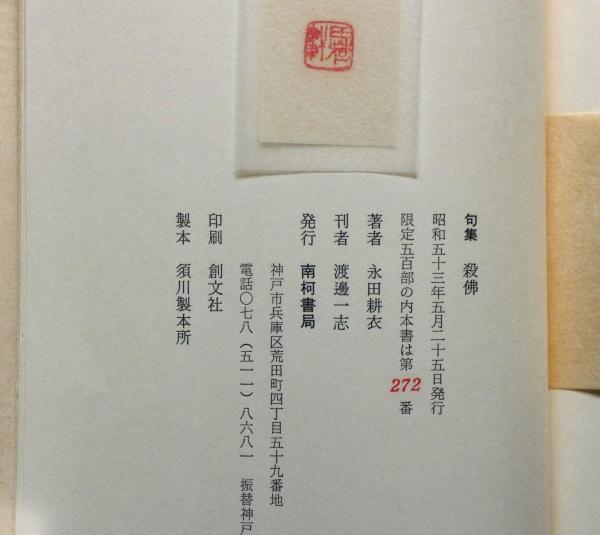 句集　殺佛
昭和五十三年五月二十五日発行
限定五百部の内本書は第272番
著者　永田耕衣
刊者　渡邊一志
発行　南柯書局
神戸市兵庫区荒田町四丁目五十九番地
電話〇七八（五一一）八六八一　振替神戸
印刷　創文社
製本　須川製本所